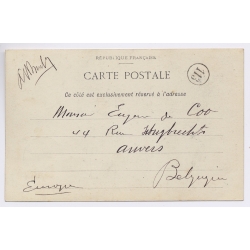 RÉPUBLIQUE FRANÇAISE
CARTE POSTALE
Ce côté est exclusivement réservé à l'adresse
113
Monsieur Eugene de Coo
44 Rue Huybrechts
Anvers
Belgique
Europe